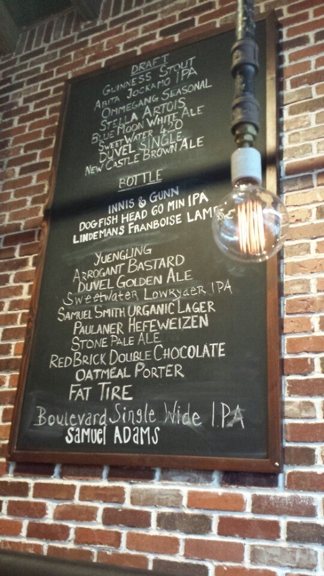 DRAFT
GUINNESS STOUT
ABITA JOCKAMO IPA
OMMEGANG SEASONAL
STELLA ARTOIS
BLUE MOON WHITE ALE
SWEETWATER 420
DUVEL SINGLE
NEW CASTLE BROWN ALE
BOTTLE
INNIS & GUNN
DOGFISH HEAD 60 MIN IPA
LINDEMANS FRANBOISE
YUENGLING
ARROGANT BASTARD
DUVEL GOLDEN ALE
SWEETWATER LOWRYDER IPA
SAMUEL SMITH ORGANIC LAGER
PAULANER HEFEWEIZEN
STONE PALE ALE
RED BRICK DOUBLE CHOCOLATE
OATMEAL PORTER
FAT TIRE
Boulevard Single Wide I.P.A
SAMUEL ADAMS